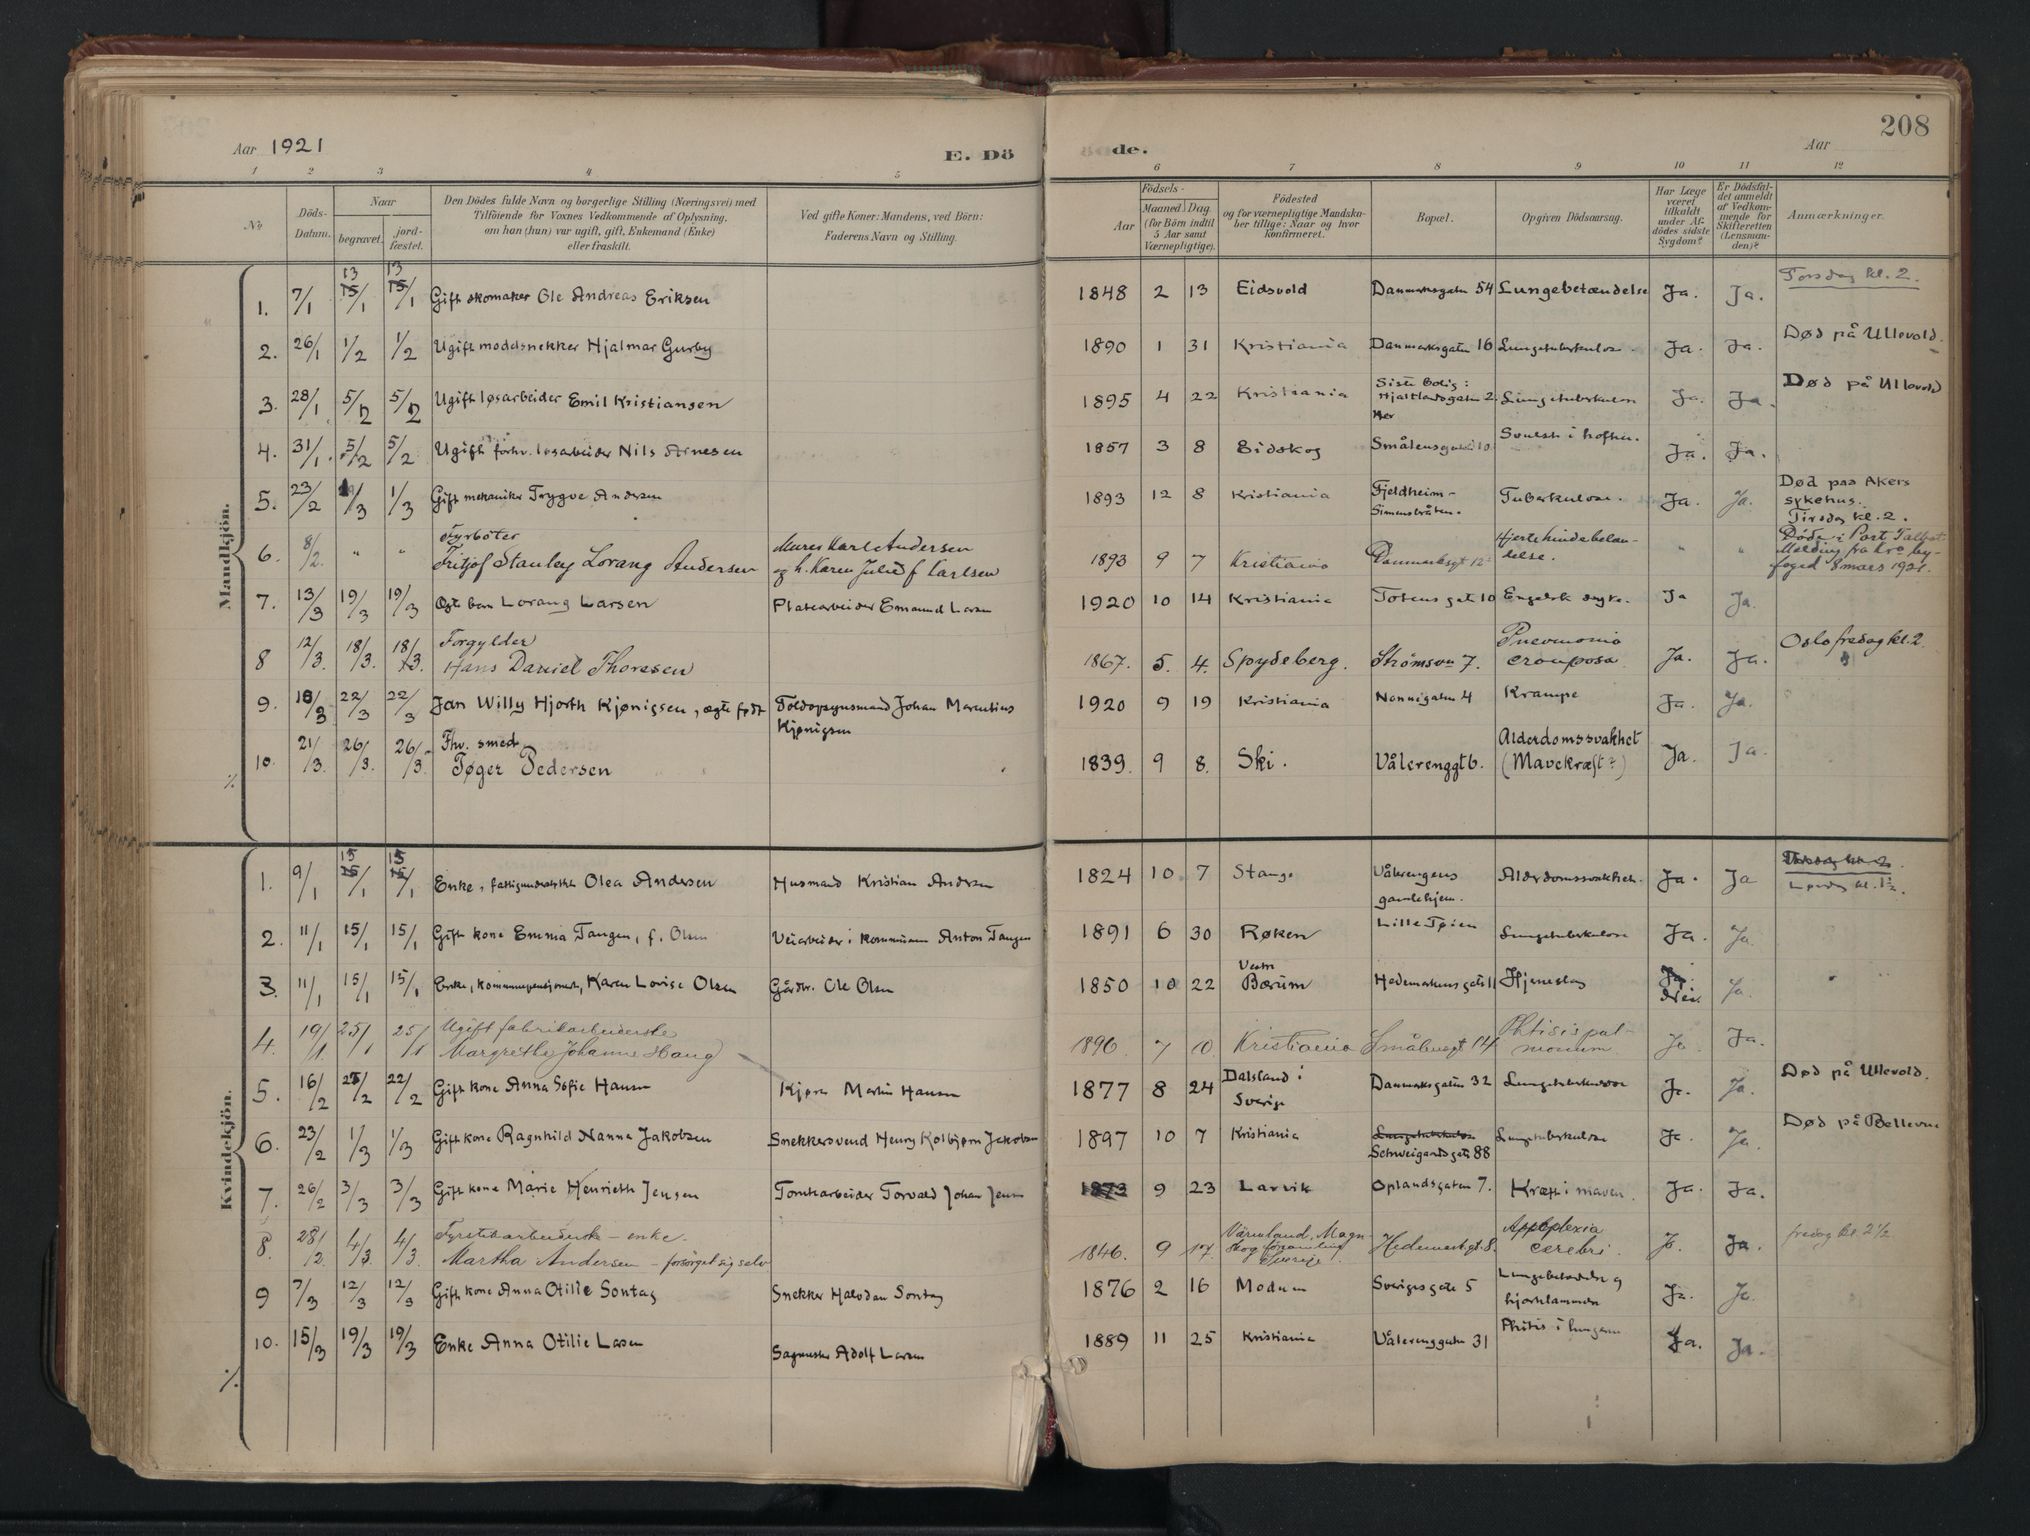 Aar 1921
E. Döde.
Aar
208
1 2 3 4 5 6 7 8 9 10 11 12
No.
Döds-Datum.
Naar
begravet.
jord-fæstet.
Den Dödes fulde Navn og borgerlige Stilling (Næringsvei) med Tilföiende for Voxnes Vedkommende af Oplysning, om han (hun) var ugift, gift, Enkemand (Enke) eller fraskilt.
Ved gifte Koner: Mandens, ved Börn: Faderens Navn og Stilling.
Födsels-
Aar
Maaned
Dag
(for Börn indtil 5 Aar samt Værnepligtige).
Födested og for værnepligtige Mandskaber tillige: Naar og hvor konfirmeret.
Bopæl.
Opgiven Dödsaarsag.
Har Læge været tilkaldt under Afdödes sidste Sygdom?
Er Dödsfaldet anmeldt af Vedkommende for Skifteretten (Lensmanden)?
Anmærkninger.
Mandkjön.
1. 7/1 13/1 13/1 Gift skomaker Ole Andreas Eriksen 1848 2 13 Eidsvold Danmarksgaten 54 Lungebetændelse Ja. Ja. Torsdag kl. 2.
2. 26/1 1/2 1/2 Ugift modelsnekker Hjalmar Gurby 1890 1 31 Kristiania Danmarksgaten 16 Lungetuberkulose. Ja. Ja. Død på Ullevold.
3. 28/1 5/2 5/2 Ugift løsarbeider Emil Kristiansen 1895 4 22 Kristiania Siste bolig: Hjaltlandsgaten 2 Lungetuberkulose Ja. Ja. Død på Ullevold
4. 31/1. 5/2 5/2 Ugift forhv. løsarbeider Nils Arnesen 1857 3 8 Eidskog Smålensgaten 10 Svulst i hoften. Ja. Ja.
5. 23/2 1/3 1/3 Gift mekaniker Trygve Andersen 1893 12 8 Kristiania Fjeldheim - Simensbråten. Tuberkulose. Ja. Ja. Død paa Akers sykehus. Tirsdag kl. 2.
6. 8/2. " " Fyrbøter Fritjof Stanley Lorang Andersen Murer Karl Andersen og h. Karen Julie f Carlsen 1893 9 7 Kristiania Danmarksgt 12 Hjertehindebetændelse. " " Døde i Port Talbot. Melding fra Kra by-foged 8 mars 1921.
7. 13/3 19/3 19/3 Ægte barn Lorang Larsen Platearbeider Emanuel Larsen 1920 10 14 Kristiania Totens gate 10 Engelsk syke. Ja Ja.
8 12/3. 18/3. 18/3. Forgylder Hans Daniel Thoresen 1867. 5. 4. Spydeberg. Strømsvn 7. Pneumonia crouposa. Ja. Ja. Oslo fredag kl. 2.
9. 18/3 22/3 22/3 Jan Willy Hjorth Kjønigsen, ægte født Toldopsynsmand Johan Marentius Kjønigsen 1920 9 19 Kristiania Nannigaten 4 Krampe Ja. Ja.
10. 21/3. 26/3. 26/3. Fhv. smed Tøger Pedersen 1839. 9 8. Ski. Vålerenggt 6. Alderdomssvakhet (Mavekræft?) Ja. Ja.
Kvindekjön.
1. 9/1 15/1 15/1 Enke, fattigunderstøttet Olea Andersen Husmand Kristian Andersen 1824 10 7 Stange Vålerengens gamlehjem. Alderdomssvakhet. Ja. Ja Lørdag kl. 1½.
2. 11/1 15/1 15/1 Gift kone Emma Tangen, f. Olsen Veiarbeider i kommunen Anton Tangen 1891 6 30 Røken Lille Tøien Lungetuberkulose Ja. Ja.
3. 11/1 15/1 15/1 Enke, kommunepensjonert, Karen Lovise Olsen Gårdbr. Ole Olsen 1850 10 22 Vestre Bærum Hedemarkens gate 11 Hjerneslag Nei. Ja.
4. 19/1. 25/1 25/1 Ugift fabrikarbeiderske Margrethe Johanne Haug 1896. 7 10. Kristiania Smålensgt 14 Phtisis pulmonum. Ja Ja.
5. 16/2 22/2 Gift kone Anna Sofie Hansen Kjører Martin Hansen 1877 8 24 Dalsland i Sverige Danmarksgaten 32 Lungetuberkulose Ja. Ja. Død på Ullevold.
6. 23/2 1/3 1/3 Gift kone Ragnhild Nanna Jakobsen Snekkersvend Henry Kolbjørn Jakobsen 1897 10 7 Kristiania Schweigaardsgate 88 Lungetuberkulose Ja. Ja. Død på Bellevue
7. 26/2 3/3 3/3 Gift kone Marie Henriette Jensen Tomtearbeider Torvald Johan Jensen 1873 9 23 Larvik Oplandsgaten 7. Kræft i maven. Ja. Ja.
8. 28/2. 4/3 4/3. Fyrstikarbeiderske - enke. Martha Andersen - forsørget sig selv 1846. 9 17. Värmland, Magnskog församling Sverige Hedemarksgt. 8. Applepexia cerebri. Ja. Ja. fredag kl. 2½
9 7/3 12/3 12/3 Gift kone Anna Otilie Sontag Snekker Halvdan Sontag 1876 2 16 Modum Sverigesgate 5 Lungebetændelse og hjertelammelse Ja. Ja
10. 15/3 19/3 19/3 Enke Anna Otilie Larsen Sagmester Adolf Larsen 1889 11 25 Kristiania Vålerenggaten 31 Phtisis i lungene Ja. Ja.